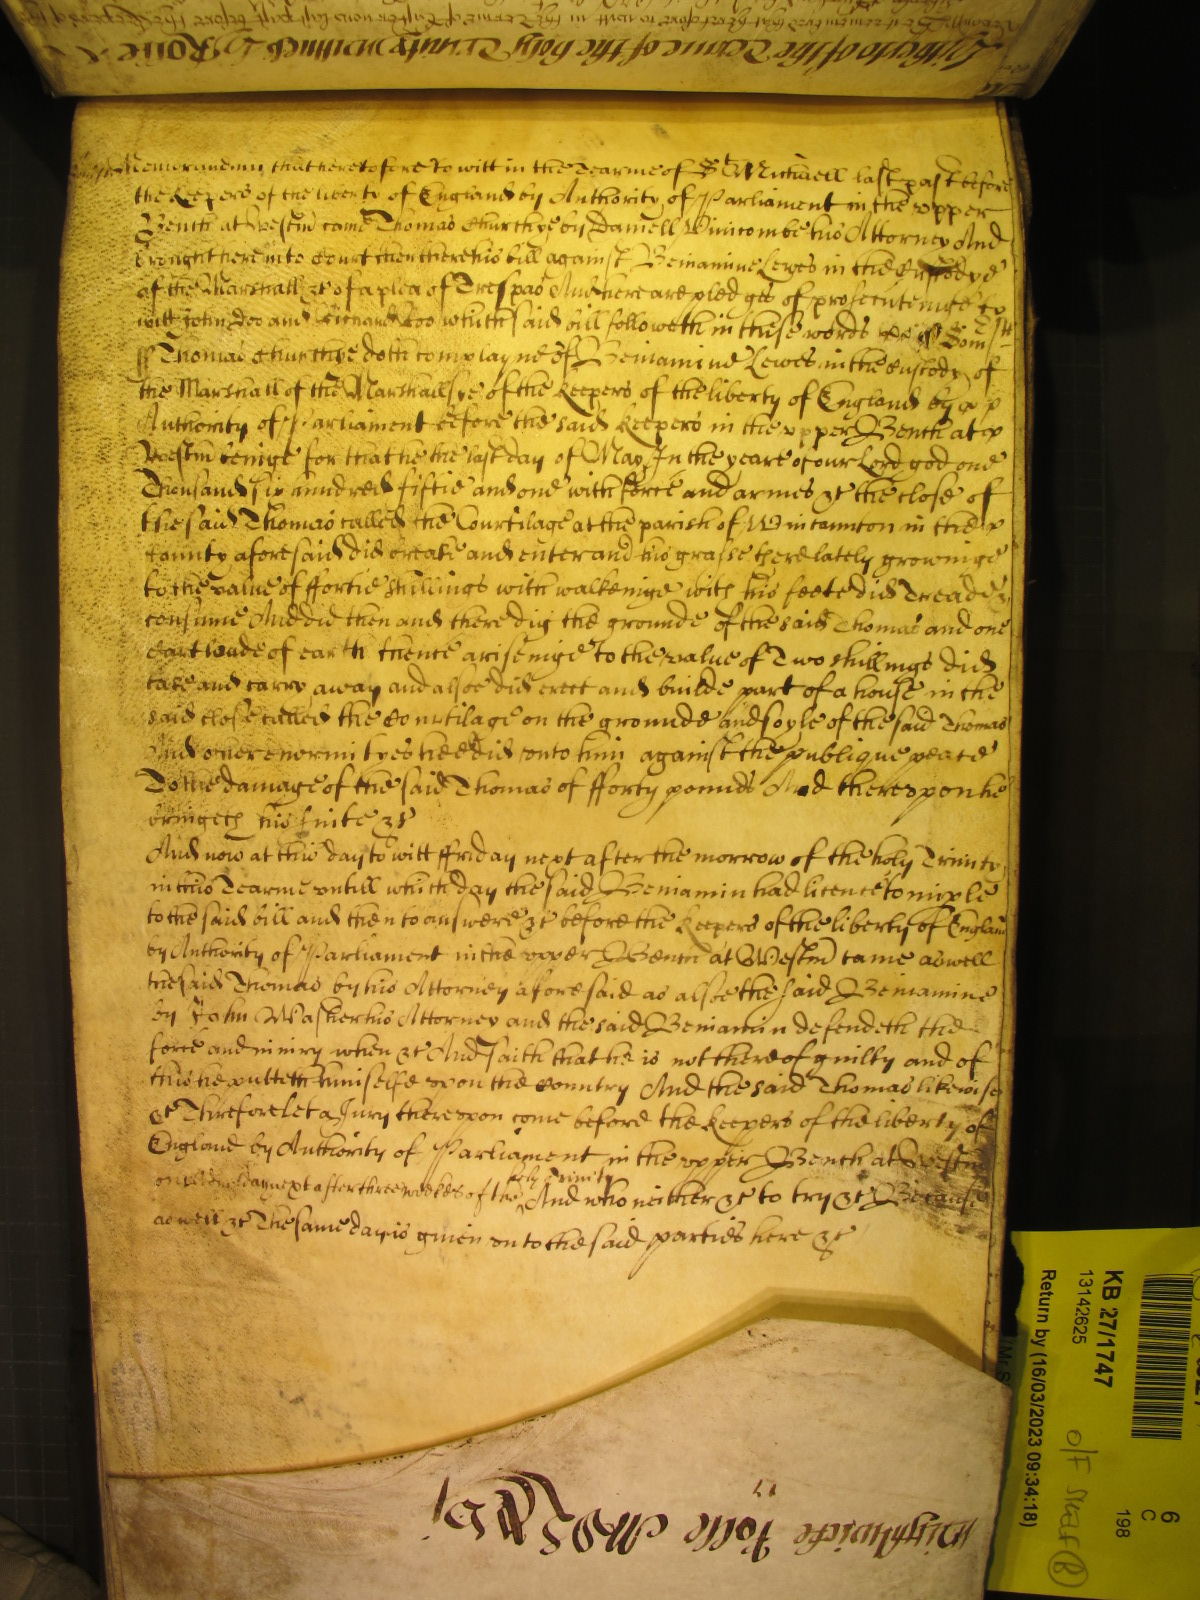 Wittnes of the Terme of the holy Trinity Wittnes Rolle
Memorandum that heretofore to witt in the Tearme of St Michaell last past before
the Keepers of the liberty of England by Authority of Parliament in the vpper
Bench at Westm came Thomas Churchye by Daniell Winicombe his Attorney And
brought here into Court then there his bill against Beniamine Lewes in the Custodye
of the Marshall &c of a plea of Trespas And here are pledges of prosecuteinge to
witt John Doo and Richard Roo which said bill followeth in these words Somst
ss Thomas Churchye doth complayne of Beniamine Lewes in the custody of
the Marshall of the Marshallsye of the Keepers of the liberty of England by
Authority of Parliament before the said Keepers in the vpper Bench at
Westm beinge for that he the last day of May In the yeare of our Lord god one
Thousand six hundred fiftie and one with force and armes &c the close of
the said Thomas called the Courtilage at the parish of Wincaunton in the
County aforesaid did breake and enter and his grasse there lately growinge
to the value of ffortie shillings with walkeinge with his feete did Treade &
consume And did then and there dig the grounde of the said Thomas and one
Cart loade of earth thence ariseinge to the value of Two shillings did
take and carry away and alsoe did erect and builde part of a house in the
said close called the Courtilage on the grounde and soyle of the said Thomas
And other enormityes hee did vnto him against the publique peace
To the damage of the said Thomas of fforty pounds And therevpon he
bringeth his suite &c
And now at this day to witt ffriday next after the morrow of the holy Trinity
in this Tearme vntill which day the said Beniamin had licence to imple
to the said bill and then to answere &c before the Keepers of the liberty of England
by Authority of Parliament in the vpper Bench at Westm came aswell
the said Thomas by his Attorney aforesaid as alsoe the said Beniamine
by John Washer his Attorney and the said Beniamin defendeth the
force and iniury when &c And saith that he is not thereof guilty and of
this he putteth himselfe vpon the Country And the said Thomas likewise
&c Therefore let a Jury therevpon come before the Keepers of the liberty of
England by Authority of Parliament in the vpper Bench at Westm
on next after three weekes of the holy Trinity And who neither &c to try &c Because
aswell &c The same day is giuen vnto the said parties here &c
KB 27/1747
13142625
Return by (16/03/2023 09:34:18)
6
C
198